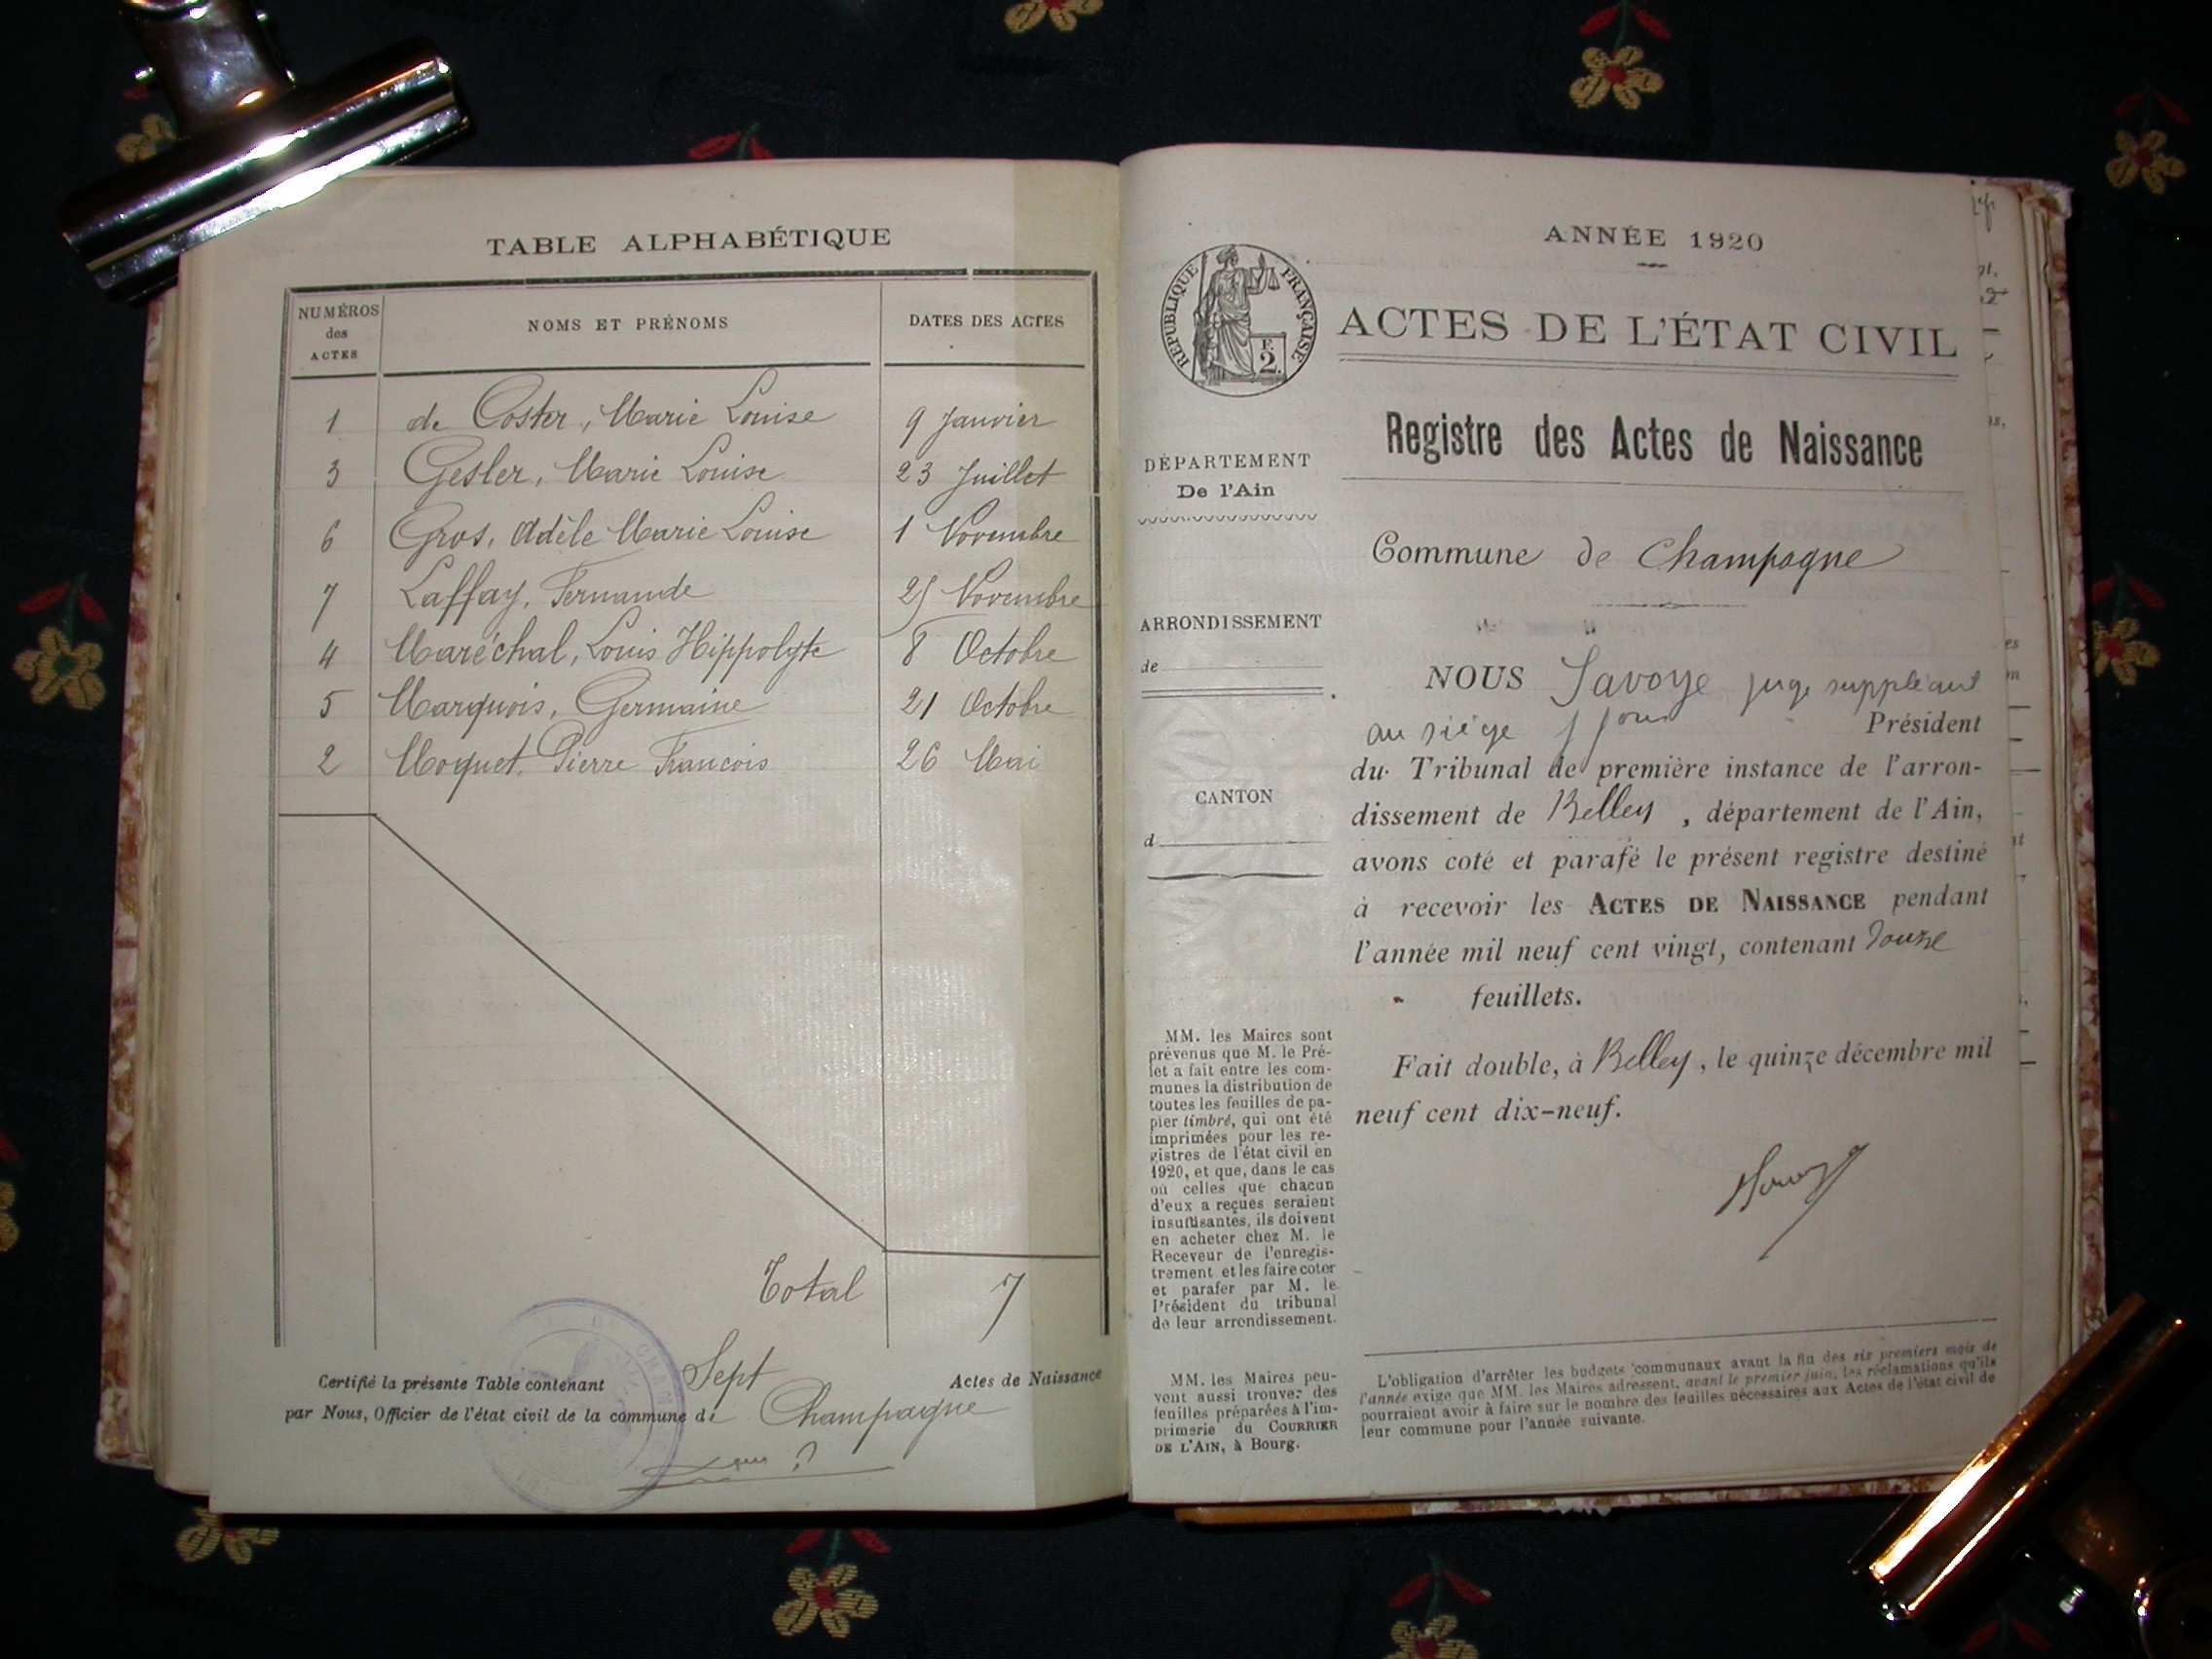 TABLE ALPHABÉTIQUE
NUMÉROS des ACTES
NOMS ET PRÉNOMS
DATES DES ACTES
1 de Coster, Marie Louise 9 Janvier
3 Gesler, Marie Louise 23 Juillet
6 Gros, Adèle Marie Louise 1 Novembre
7 Laffay, Fernande 25 Novembre
4 Maréchal, Louis Hippolyte 8 Octobre
5 Marquois, Germaine 21 Octobre
2 Moquet, Pierre Francois 26 Mai
Total 7
Certifié la présente Table contenant Sept Actes de Naissance
par Nous, Officier de l'état civil de la commune de Champagne
ANNÉE 1920
RÉPUBLIQUE FRANÇAISE
F.
2.
ACTES DE L'ÉTAT CIVIL
Registre des Actes de Naissance
DÉPARTEMENT
De l'Ain
ARRONDISSEMENT
de
CANTON
d
MM. les Maires sont
prévenus que M. le Pré-
fet a fait entre les com-
munes la distribution de
toutes les feuilles de pa-
pier timbré, qui ont été
imprimées pour les re-
gistres de l'état civil en
1920, et que, dans le cas
où celles que chacun
d'eux a reçues seraient
insuffisantes, ils doivent
en acheter chez M. le
Receveur de l'enregis-
trement et les faire coter
et parafer par M. le
Président du tribunal
de leur arrondissement.
MM. les Maires peu-
vent aussi trouver des
feuilles préparées à l'im-
primerie du COURRIER
DE L'AIN, à Bourg.
Commune de Champagne
NOUS Savoye juge suppléant
au siège Président
du Tribunal de première instance de l'arron-
dissement de Belley, département de l'Ain,
avons coté et parafé le présent registre destiné
à recevoir les ACTES DE NAISSANCE pendant
l'année mil neuf cent vingt, contenant douze
feuillets.
Fait double, à Belley, le quinze décembre mil
neuf cent dix-neuf.
L'obligation d'arrêter les budgets communaux avant la fin des six premiers mois de
l'année exige que MM. les Maires adressent, avant le premier juin, les réclamations qu'ils
pourraient avoir à faire sur le nombre des feuilles nécessaires aux Actes de l'état civil de
leur commune pour l'année suivante.